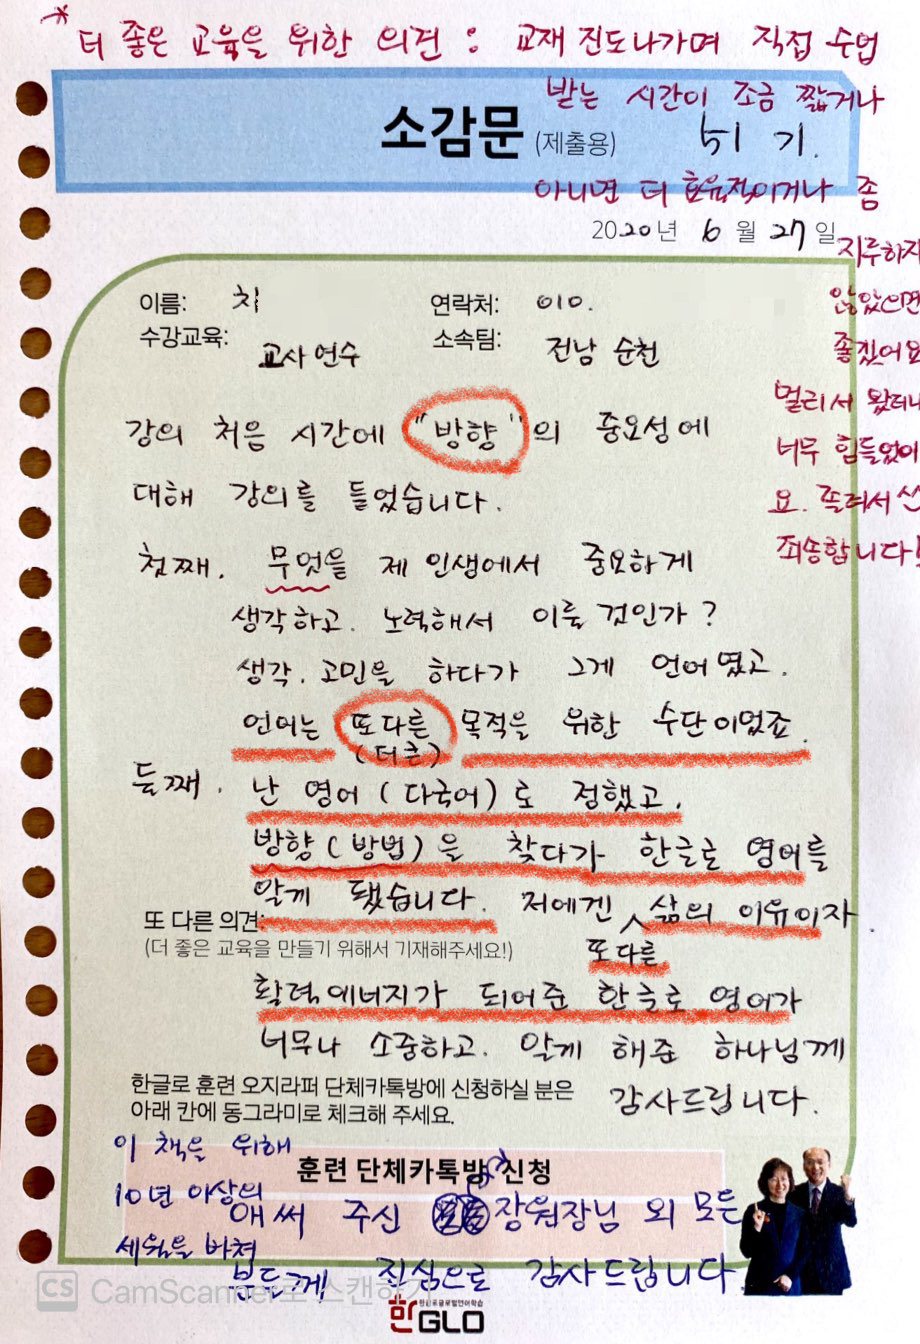 * 더 좋은 교육을 위한 의견 : 교재 진도나가며 직접 수업
받는 시간이 조금 짧거나
쉬기.
아니면 더 효율적이거나 좀
지루하지
않았으면
좋겠어요
멀리서 왔더니
너무 힘들었어
요. 졸려서
죄송합니다!
소감문 (제출용)
2020년 6월 27일
이름:
연락처: 010.
수강교육: 교사연수
소속팀: 전남 순천
강의 처음 시간에 "방향"의 중요성에
대해 강의를 들었습니다.
첫째. 무엇을 제 인생에서 중요하게
생각하고. 노력해서 이룰 것인가?
생각. 고민을 하다가 그게 언어였고.
언어는 또다른 목적을 위한 수단이었죠.
(더큰)
둘째. 난 영어(다국어)로 정했고.
방향(방법)을 찾다가 한글로 영어를
알게 됐습니다. 저에겐 삶의 이유이자
또 다른 의견:
(더 좋은 교육을 만들기 위해서 기재해주세요!)
또다른
활력에너지가 되어준 한글로 영어가
너무나 소중하고. 알게 해준 하나님께
감사드립니다.
한글로 훈련 오지라퍼 단체카톡방에 신청하실 분은
아래 칸에 동그라미로 체크해 주세요.
훈련 단체카톡방 신청
이 책을 위해
10년 이상의
세월을 바쳐
애써 주신 장원장님 외 모든
분들께 진심으로 감사드립니다.
CS CamScanner로 스캔하기
한글로글로벌언어학습
한GLO